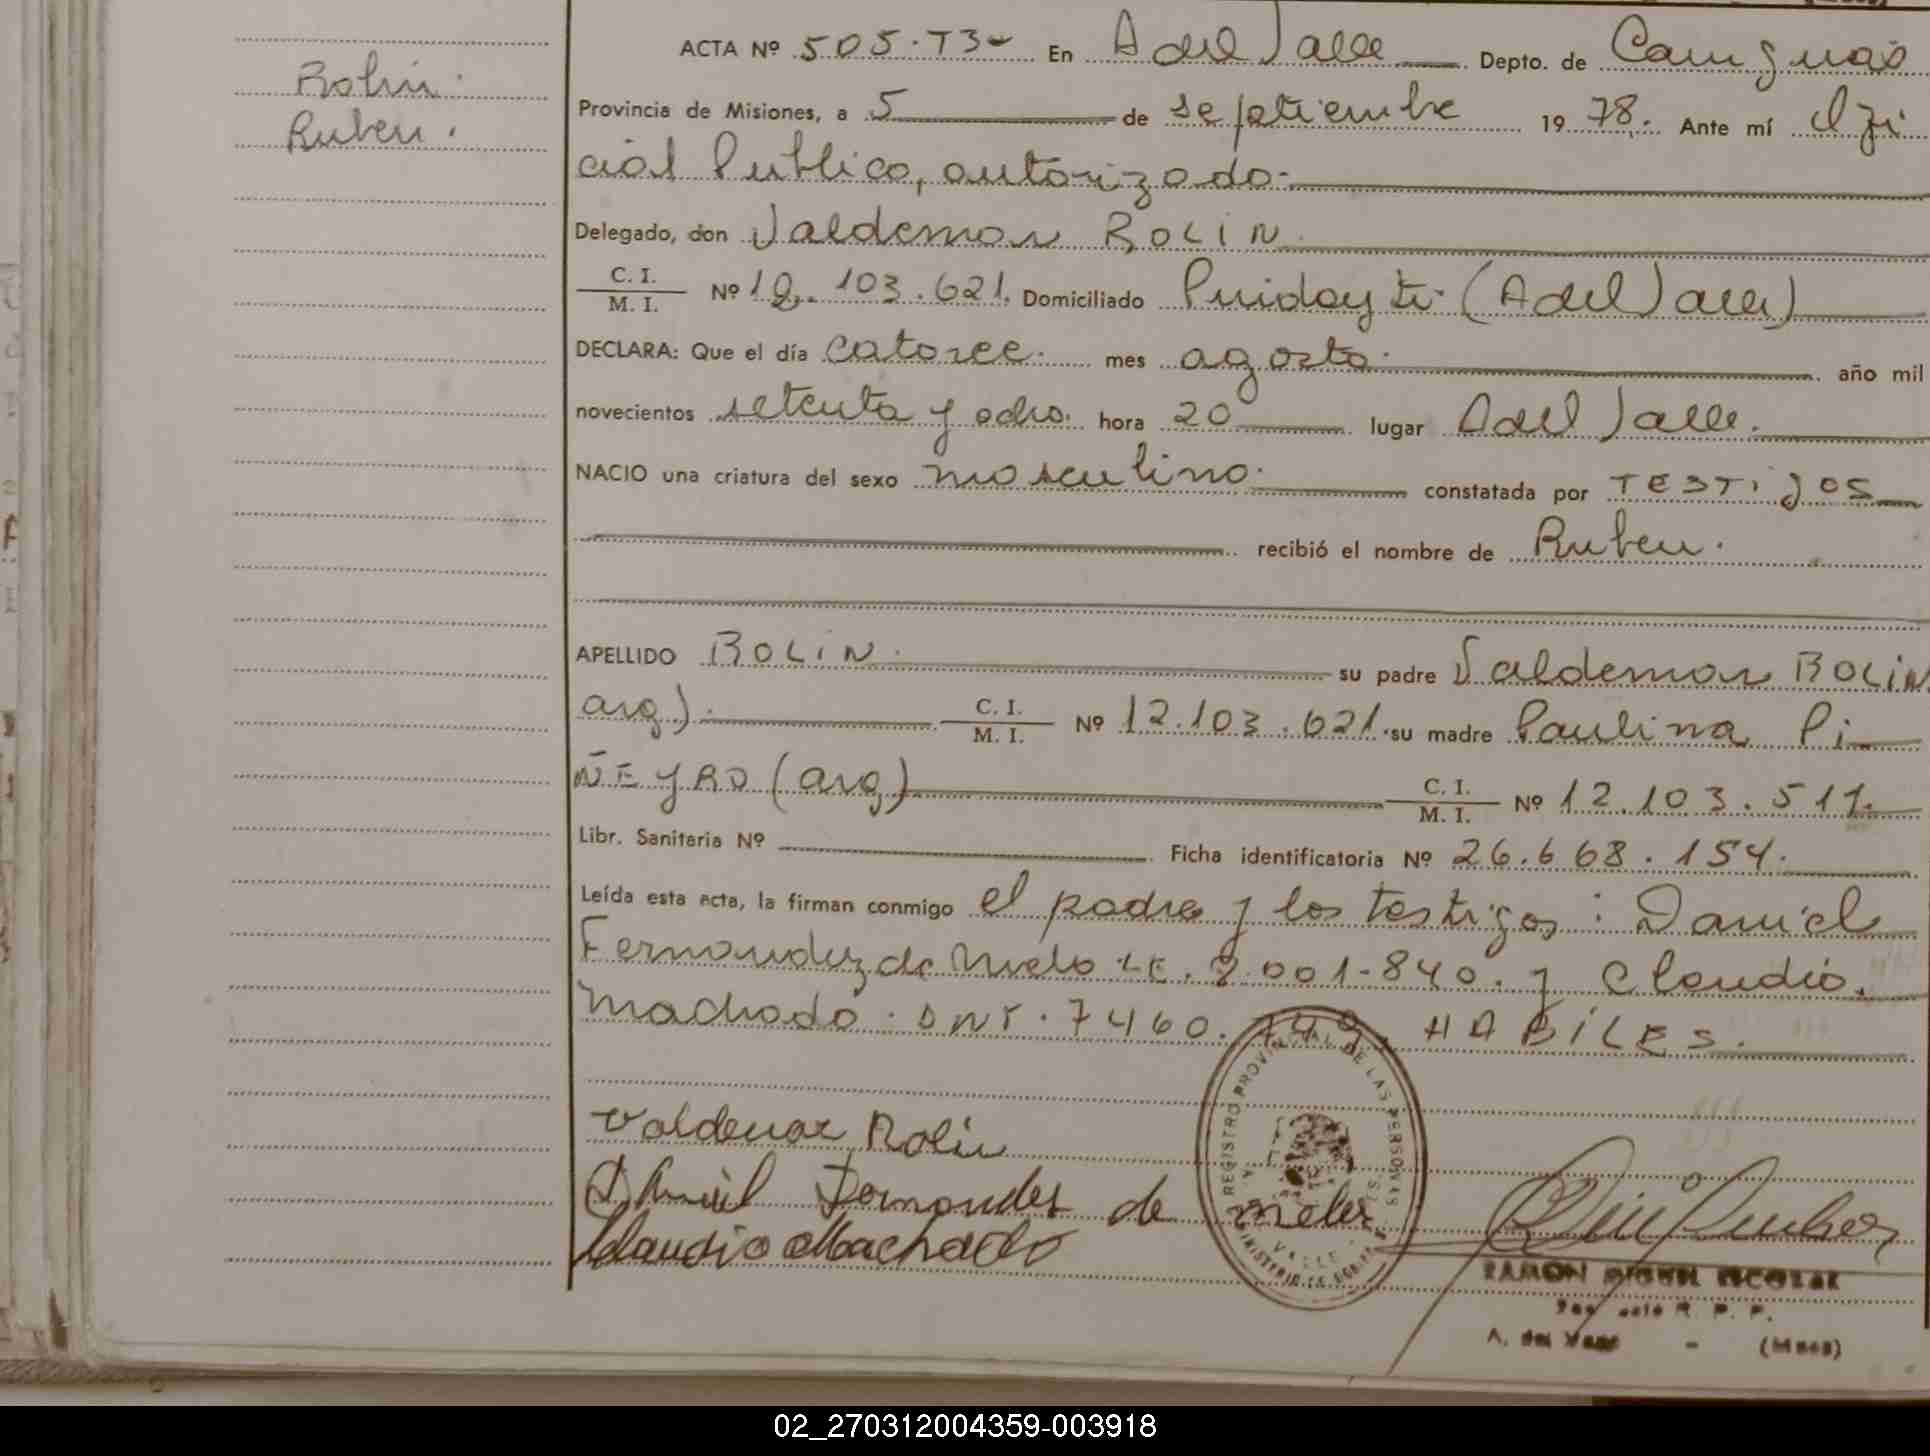 Rolin
Ruben.
ACTA Nº 505-T3- En A del Valle Depto. de Cainguás
Provincia de Misiones, a 5 de septiembre 1978. Ante mí Ofi
cial Publico, autorizado.
Delegado, don Valdemar ROLIN
C. I. / M. I. Nº 12.103.621. Domiciliado (A del Valle)
DECLARA: Que el día catorce mes agosto año mil
novecientos setenta y ocho hora 20 lugar A del Valle.
NACIO una criatura del sexo masculino constatada por TESTigos
recibió el nombre de Ruben.
APELLIDO ROLIN su padre Valdemar ROLIN
arg) C. I. / M. I. Nº 12.103.621 su madre Paulina Pi
ÑEyRO (arg) C. I. / M. I. Nº 12.103.511.
Libr. Sanitaria Nº Ficha identificatoria Nº 26.668.154.
Leída esta acta, la firman conmigo el padre y los testigos: Daniel
Fernandez de Melo LE. 2.001-840. y Claudio
Machado. DNI. 7460.749. HABiLES.
Valdemar Rolin
Daniel Fernandes de melo
Claudio Machado
REGISTRO PROVINCIAL DE LAS PERSONAS
RAMON MIGUEL ESCOBAR
R. P. P.
A. del Valle - (Mnes)
02_270312004359-003918